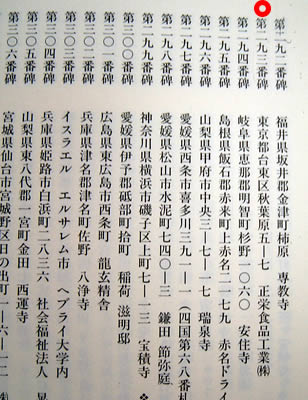 第一九二番碑 福井県坂井郡金津町柿原 専教寺
第一九三番碑 東京都台東区秋葉原五―七 正栄食品工業(株)
第一九四番碑 岐阜県恵那郡明智町杉野一〇六〇 安住寺
第一九五番碑 島根県飯石郡赤来町上赤名二二七九 赤名ドライ
第一九六番碑 山梨県甲府市中央三―七―一七 瑞泉寺
第一九七番碑 愛媛県西条市喜多川三九一―一 (四国第六八番札
第一九八番碑 愛媛県松山市水泥町七四〇―三 鎌田 節弥庭
第一九九番碑 神奈川県横浜市磯子区上町七―一三 宝積寺
第二〇〇番碑 愛媛県伊予郡砥部町拾町 稲荷 滋明邸
第二〇一番碑 広島県東広島市西条町 龍玄精舎
第二〇二番碑 兵庫県津名郡津名町佐野 八浄寺
第二〇三番碑 イスラエル エルサレム市 ヘブライ大学内
第二〇四番碑 兵庫県姫路市白浜町一八三六 社会福祉法人
第二〇五番碑 山梨県東八代郡一宮町金田 西運寺
第二〇六番碑 宮城県仙台市宮城野区日の出町一―六―一二